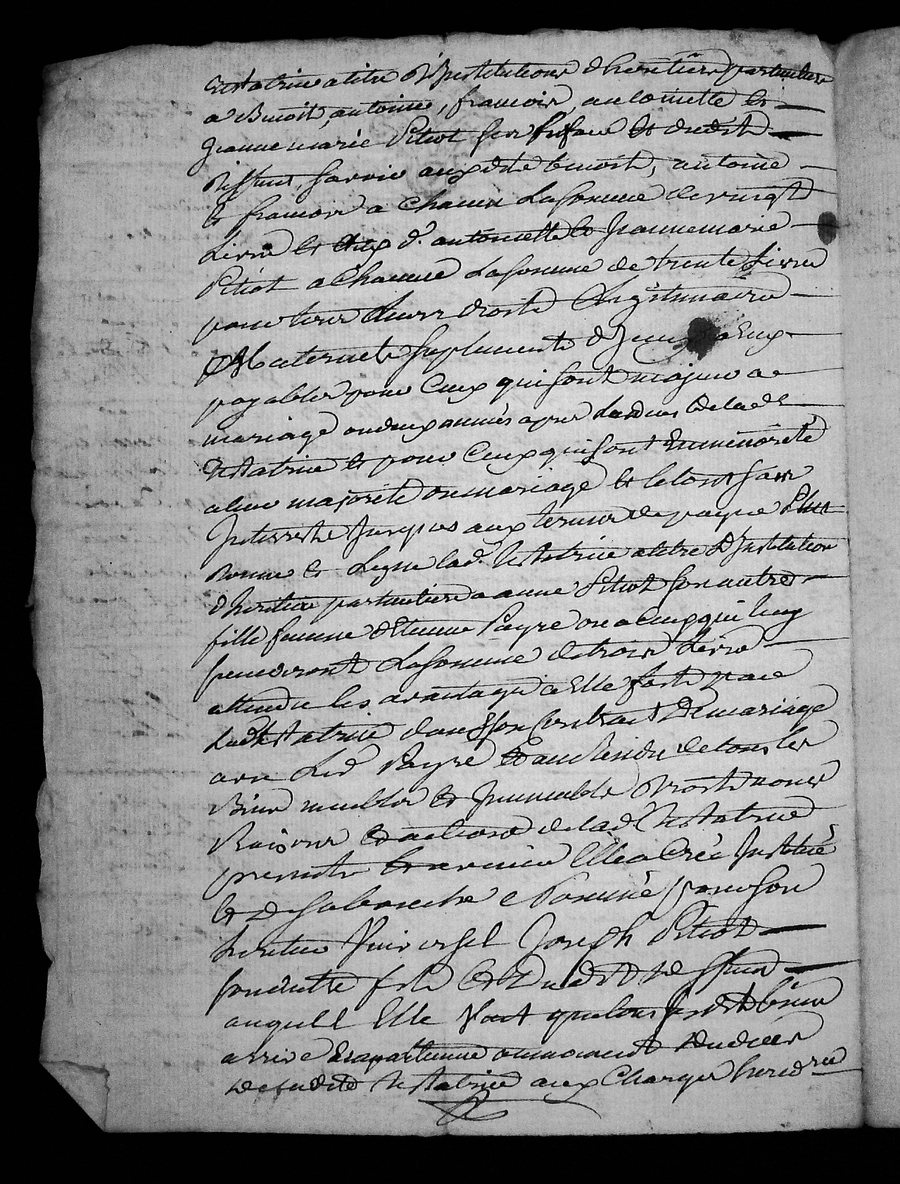 testatrice a titre d'Institutions d'heritiers particuliers
a Benoit, antoine, francois, antoinette et
Jeanne marie Pitiot ses enfans et dudit
deffunt savoir auxdits benoit, antoine
et francois a chacun La somme de vingt
Livres et auxd. antoinette et Jeannemarie
Pitiot a chacune La somme de trente Livres
pour tous Leurs droits Legitimaires
Maternels suplements d'Iceux
payables pour Ceux qui sont majeurs a
mariage ou deux années apres Le deces de lade
testatrice et pour Ceux qui sont En minorité
a leur majorité ou mariage et le tout sans
Interrets Jusques aux termes de payes Plus
donne et Legue lad. testatrice a titre d'Institution
d'heritiere particuliere a anne Pitiot son autre
fille femme d'Etienne Payre ou a Ceux qui luy
La somme de trois Livres
attendu les avantages a Elle faits par
Ladte testatrice dans son Contrat De mariage
avec Led Payre Et au residu de tous les
Biens meubles et Immeubles Droits noms
Raisons et actions de lad testatrice
presents et avenir Elle a Créé Institué
et de sa bouche Nommé pour son
heritier Universel Joseph Pitiot
sondit fils Et dudit deffunt
auquel Elle Veut que tous sesdits biens
arrive Et apartienne au moment du deces
De ladite testatrice aux Charges heredres